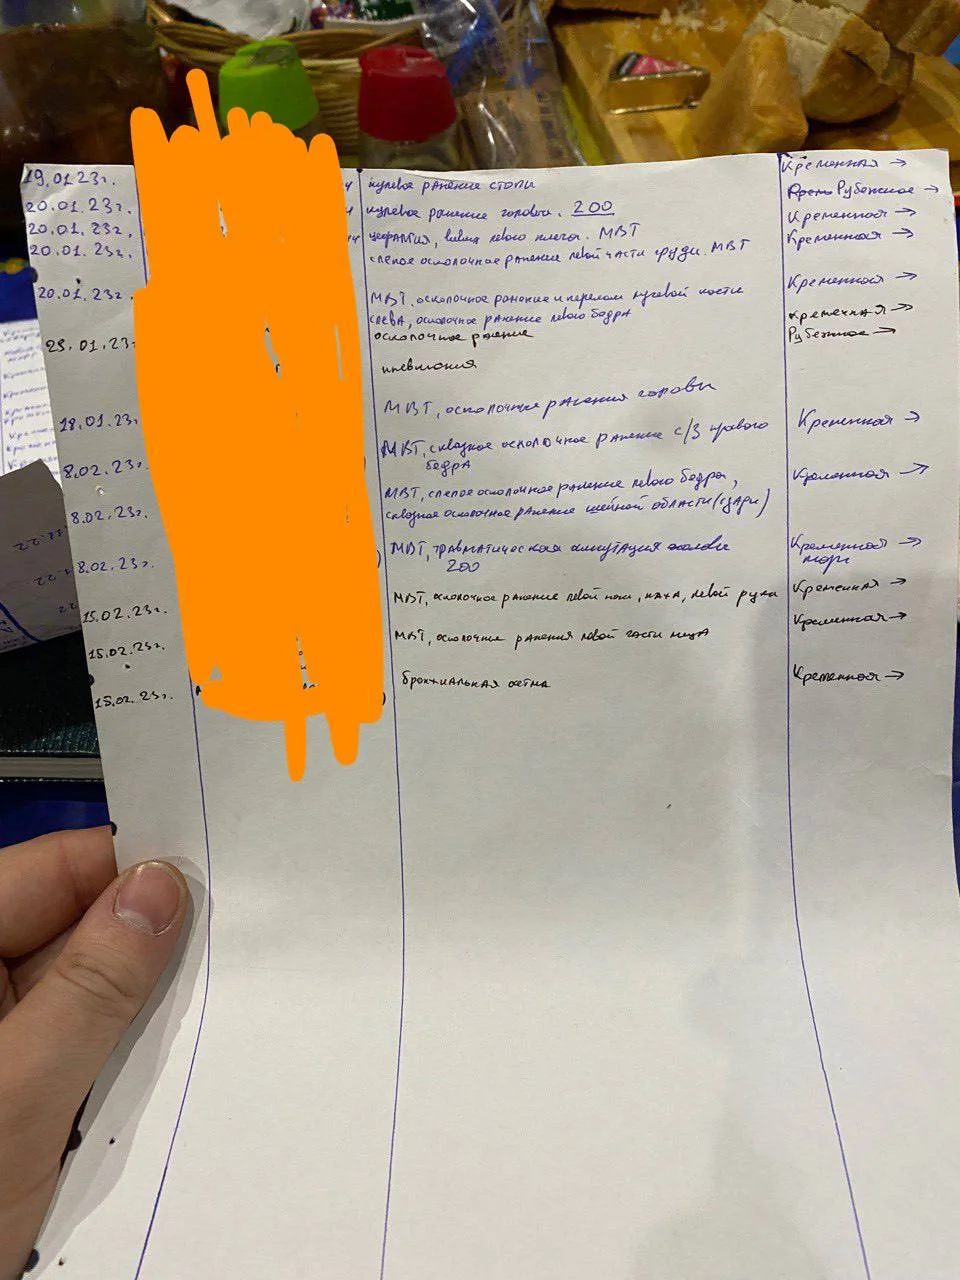 19.01.23г. пулевое ранение стопы Кременная →
20.01.23г. пулевое ранение головы. 200 Рубежное →
20.01.23г. левого плеча. МВТ Кременная →
20.01.23г. слепое осколочное ранение левой части груди. МВТ Кременная →
20.01.23г. МВТ. осколочное ранение и перелом лучевой кости Кременная →
слева, осколочное ранение левого бедра
23.01.23г. осколочное ранение Кременная →
Рубежное →
пневмония
18.01.23г. МВТ, осколочные ранения головы Кременная →
8.02.23г. МВТ, сквозное осколочное ранение с/3 правого
бедра Кременная →
8.02.23г. МВТ, слепое осколочное ранение левого бедра,
сквозное осколочное ранение шейной области (сзади)
8.02.23г. МВТ, травматическая ампутация головы Кременной →
200 морг
15.02.23г. МВТ, осколочное ранение левой ноги, паха, левой руки Кременная →
15.02.23г. МВТ, осколочные ранения левой части лица Кременная →
15.02.23г. бронхиальная астма Кременная →